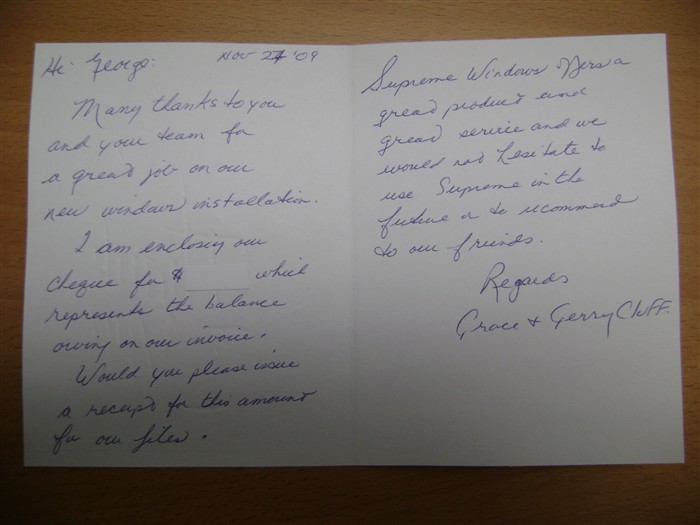 Hi George: Nov 24 '09
Many thanks to you
and your team for
a great job on our
new window installation.
I am enclosing our
cheque for $ which
represents the balance
owing on our invoice.
Would you please issue
a receipt for this amount
for our files.
Supreme Windows offers a
great product and
great service and we
would not hesitate to
use Supreme in the
future or to recommend
to our friends.
Regards
Grace & Gerry Cluff.